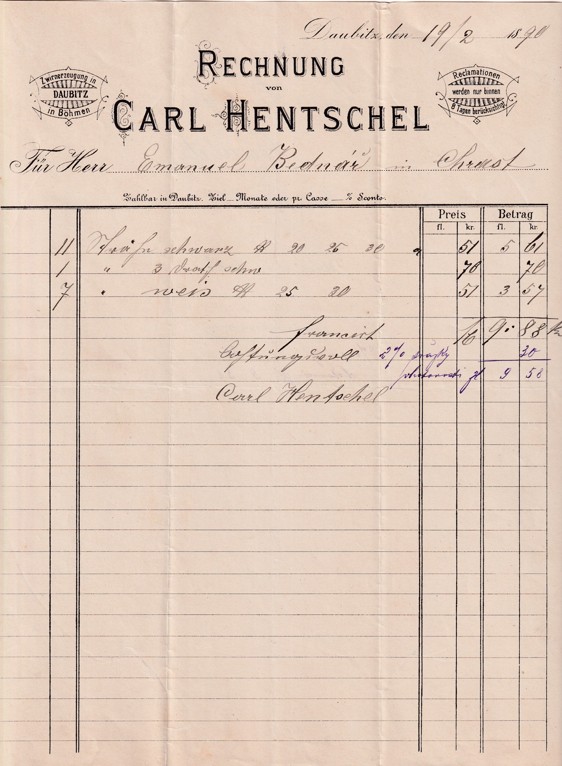 Daubitz, den 19/2 1890
RECHNUNG
von
CARL HENTSCHEL
Zwirnerzeugung in
DAUBITZ
in Böhmen
Reclamationen
werden nur binnen
8 Tagen berücksichtigt
Für Herr Emanuel Bednář in Chrast
Zahlbar in Daubitz. Ziel Monate oder pr. Casse % Sconto.
Preis Betrag
fl. kr. fl. kr.
11 Strähn schwarz 20 25 30 51 5 61
1 " 3 drath schw 70 70
7 " weis 25 30 51 3 57
francirt 9 : 88
2% 30
9 58
Carl Hentschel